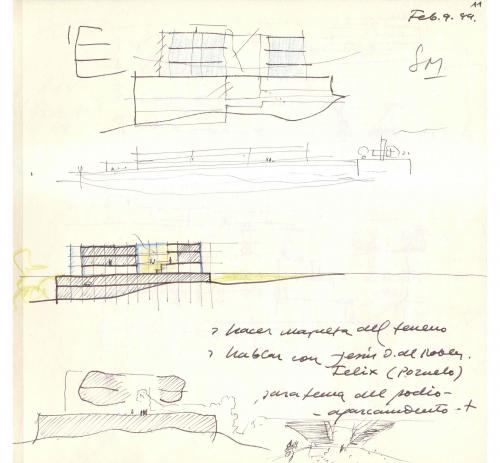 11
Feb. 9. 99.
SM
> hacer maqueta del terreno
> hablar con Jesús D. del
Felix (Pozuelo)
para tema del podio-
-aparcamiento-